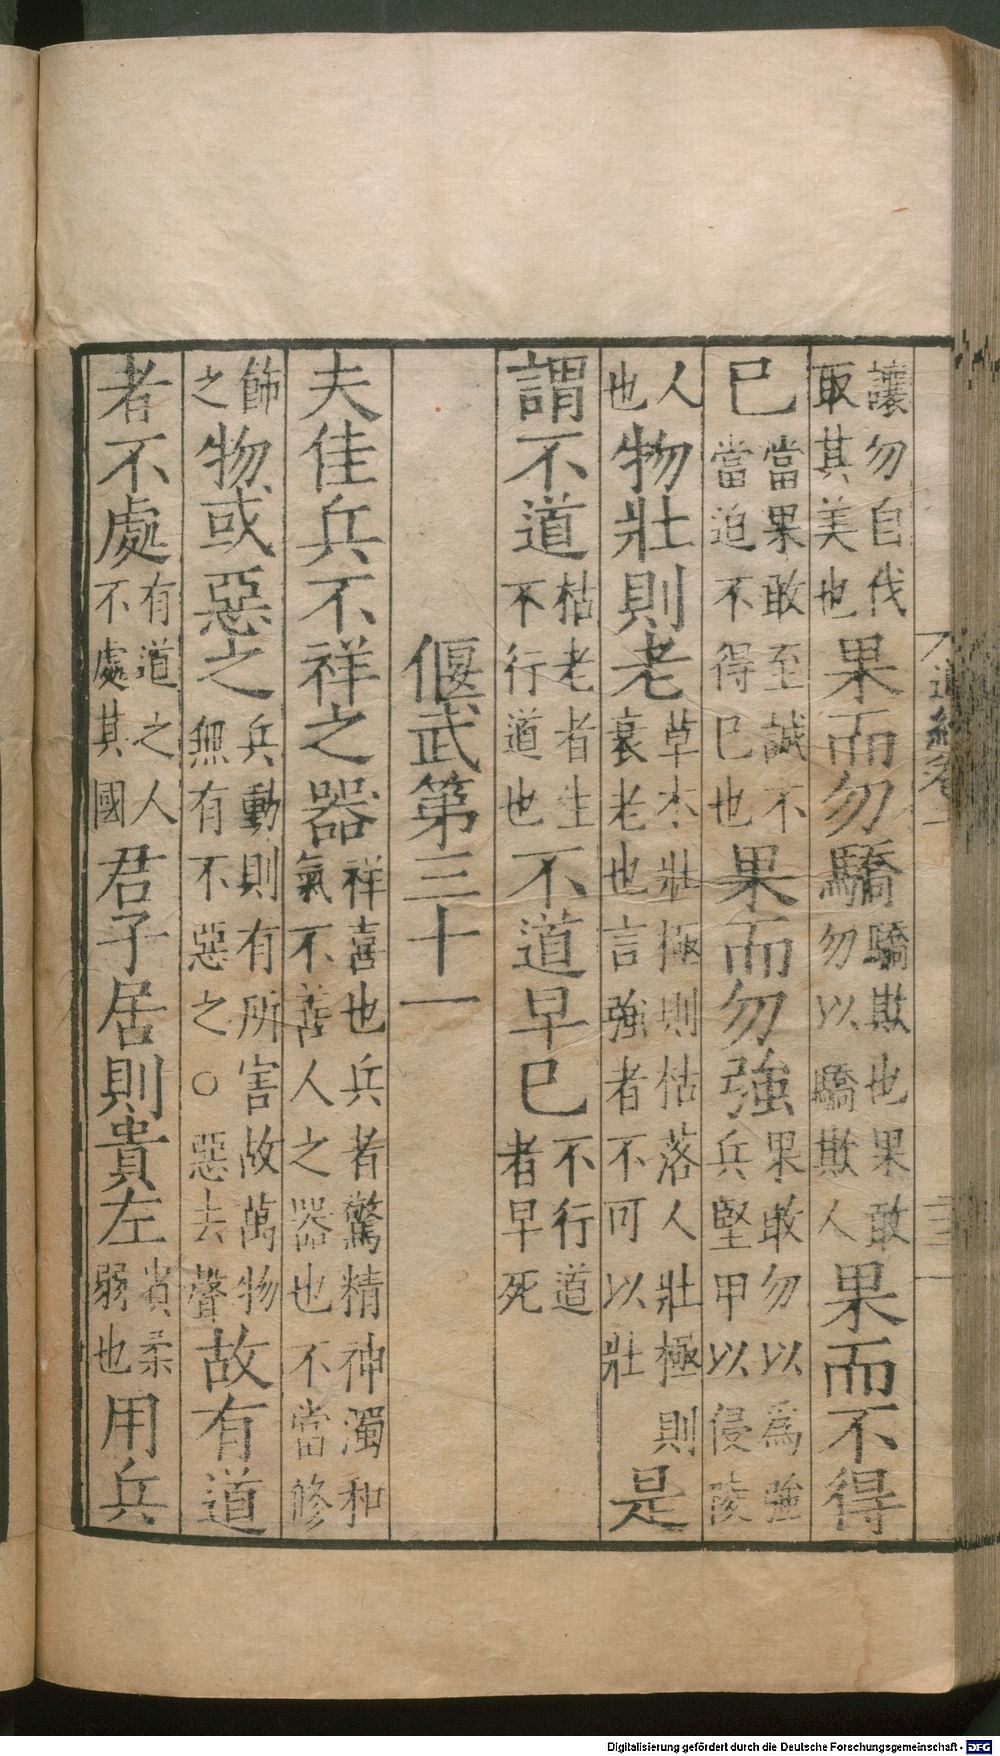 讓勿自伐取其美也果而勿驕驕欺也果敢勿以驕欺人果而不得
已當果敢至誠不當迫不得已也果而勿強果敢勿以爲強兵堅甲以侵陵
人也物壯則老草木壯極則枯落人壯極則衰老也言強者不可以壯是
謂不道枯老者生不行道也不道早已不行道者早死
偃武第三十一
夫佳兵不祥之器祥喜也兵者驚精神濁和氣不善人之器也不當修
飾之物或惡之兵動則有所害故萬物無有不惡之○惡去聲故有道
者不處有道之人不處其國君子居則貴左貴柔弱也用兵
Digitalisierung gefördert durch die Deutsche Forschungsgemeinschaft - DFG